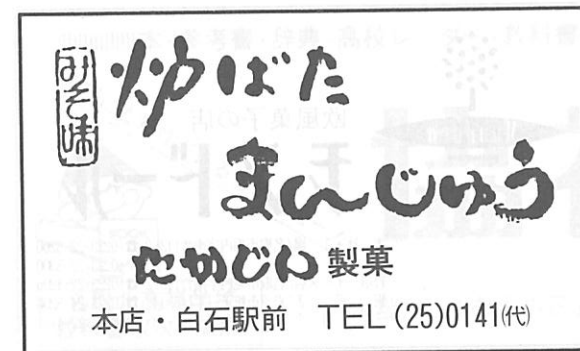 みそ味
炉ばた
まんじゅう
たかじん製菓
本店・白石駅前 TEL(25)0141㈹